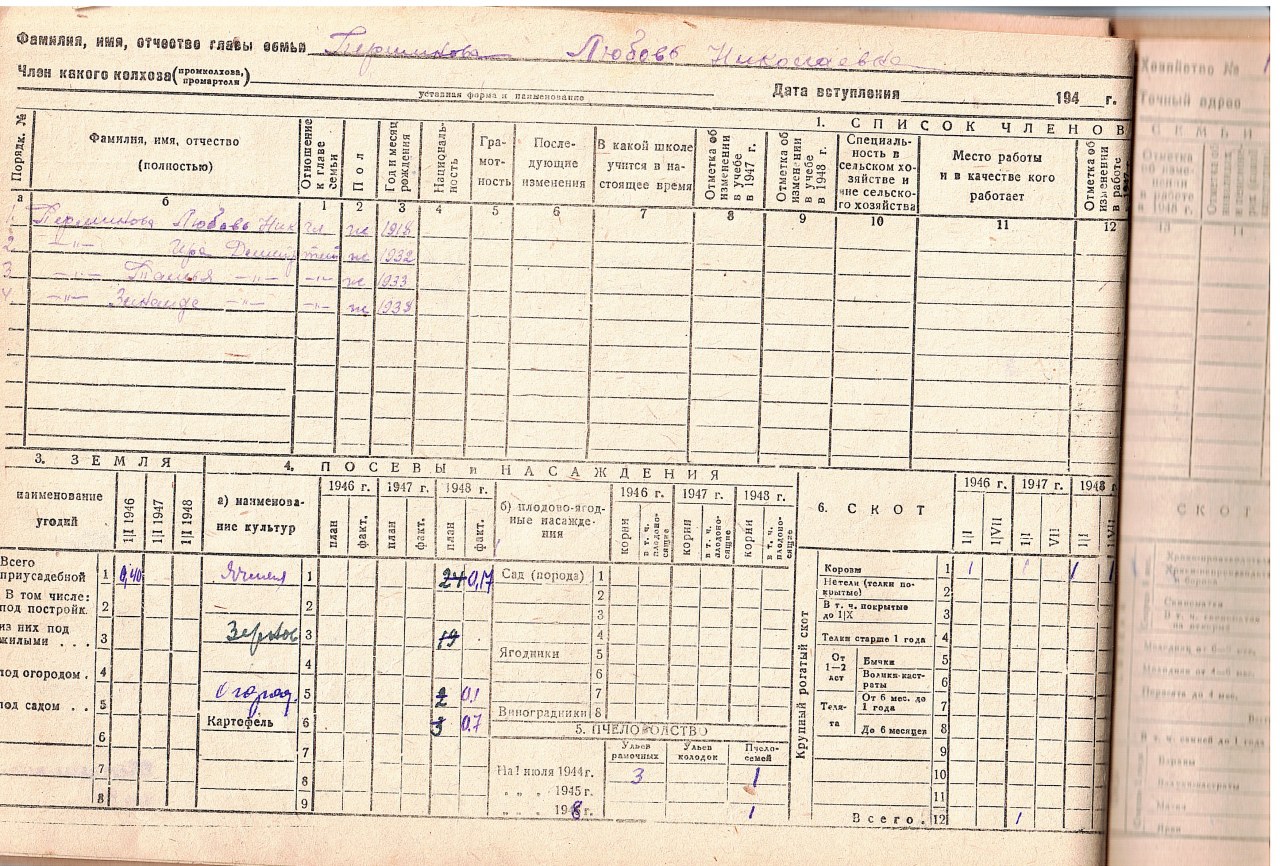 Фамилия, имя, отчество главы семьи Першинова Любовь Николаевна
Член какого колхоза (промколхоза, промартели)
уставная форма и наименование
Дата вступления 194 г.
1. СПИСОК ЧЛЕНОВ
Порядк. №
Фамилия, имя, отчество (полностью)
Отношение к главе семьи
Пол
Год и месяц рождения
Националь-ность
Гра-мот-ность
После-дующие изменения
В какой школе учится в на-стоящее время
Отметка об изменении в учебе в 1947 г.
Отметка об изменении в учебе в 1948 г.
Специаль-ность в сельском хо-зяйстве и вне сельско-го хозяйства
Место работы и в качестве кого работает
Отметка об изменении в работе
а б 1 2 3 4 5 6 7 8 9 10 11 12
1 Першинова Любовь Ник гл ж 1918
2 —"— Ира ж 1932
3 —"— —"— —"— ж 1933
4 —"— Зинаида —"— —"— ж 1938
3. ЗЕМЛЯ
наименование угодий
1|I 1946
1|I 1947
1|I 1948
Всего приусадебной 1 0,40
В том числе: под постройк. 2
из них под жилыми . . . 3
под огородом . 4
под садом . . 5
6
7
8
4. ПОСЕВЫ и НАСАЖДЕНИЯ
а) наименова-ние культур
1946 г. 1947 г. 1948 г.
план факт. план факт. план факт.
Ячменя 1 24 0,17
2
Зернов 3 19
4
Огород 5 2 0,1
Картофель 6 3 0,7
7
8
9
б) плодово-ягод-ные насажде-ния
1946 г. 1947 г. 1948 г.
корни в т. ч. плодоно-сящие корни в т. ч. плодоно-сящие корни в т. ч. плодоно-сящие
Сад (порода) 1
2
3
4
Ягодники 5
6
7
Виноградники 8
5. ПЧЕЛОВОДСТВО
Ульев рамочных
Ульев колодок
Пчело-семей
На 1 июля 1944 г. 3 1
" " " 1945 г.
" " " 1948 г. 1
6. СКОТ
1946 г. 1947 г. 1948 г.
1|I 1|VII 1|I VII 1|I 1|VII
Крупный рогатый скот
Коровы 1 1 1 1 1
Нетели (телки по-крытые) 2
В т. ч. покрытые до 1|X 3
Телки старше 1 года 4
От 1—2 лет
Бычки 5
Волики-каст-раты 6
Теля-та
От 6 мес. до 1 года 7
До 6 месяцев 8
9
10
11
Всего. 12 1
Хозяйство №
Точный адрес
СЕМЬИ
Отметка об изме-нении в работе в 1948 г.
13
СКОТ